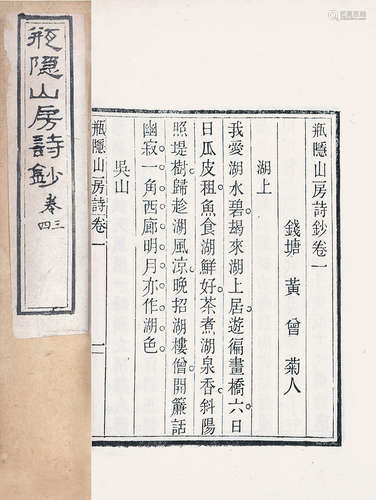 瓶隱山房詩鈔 卷三
四
瓶隱山房詩鈔卷一
錢塘 黃曾 菊人
湖上
我愛湖水碧曷來湖上居遊徧畫橋六日
日瓜皮租魚食湖鮮好茶煮湖泉香斜陽
照堤樹歸趁湖風涼晚招湖樓僧開簾話
幽寂一角西廊明月亦作湖色
吳山
瓶隱山房詩卷一
一